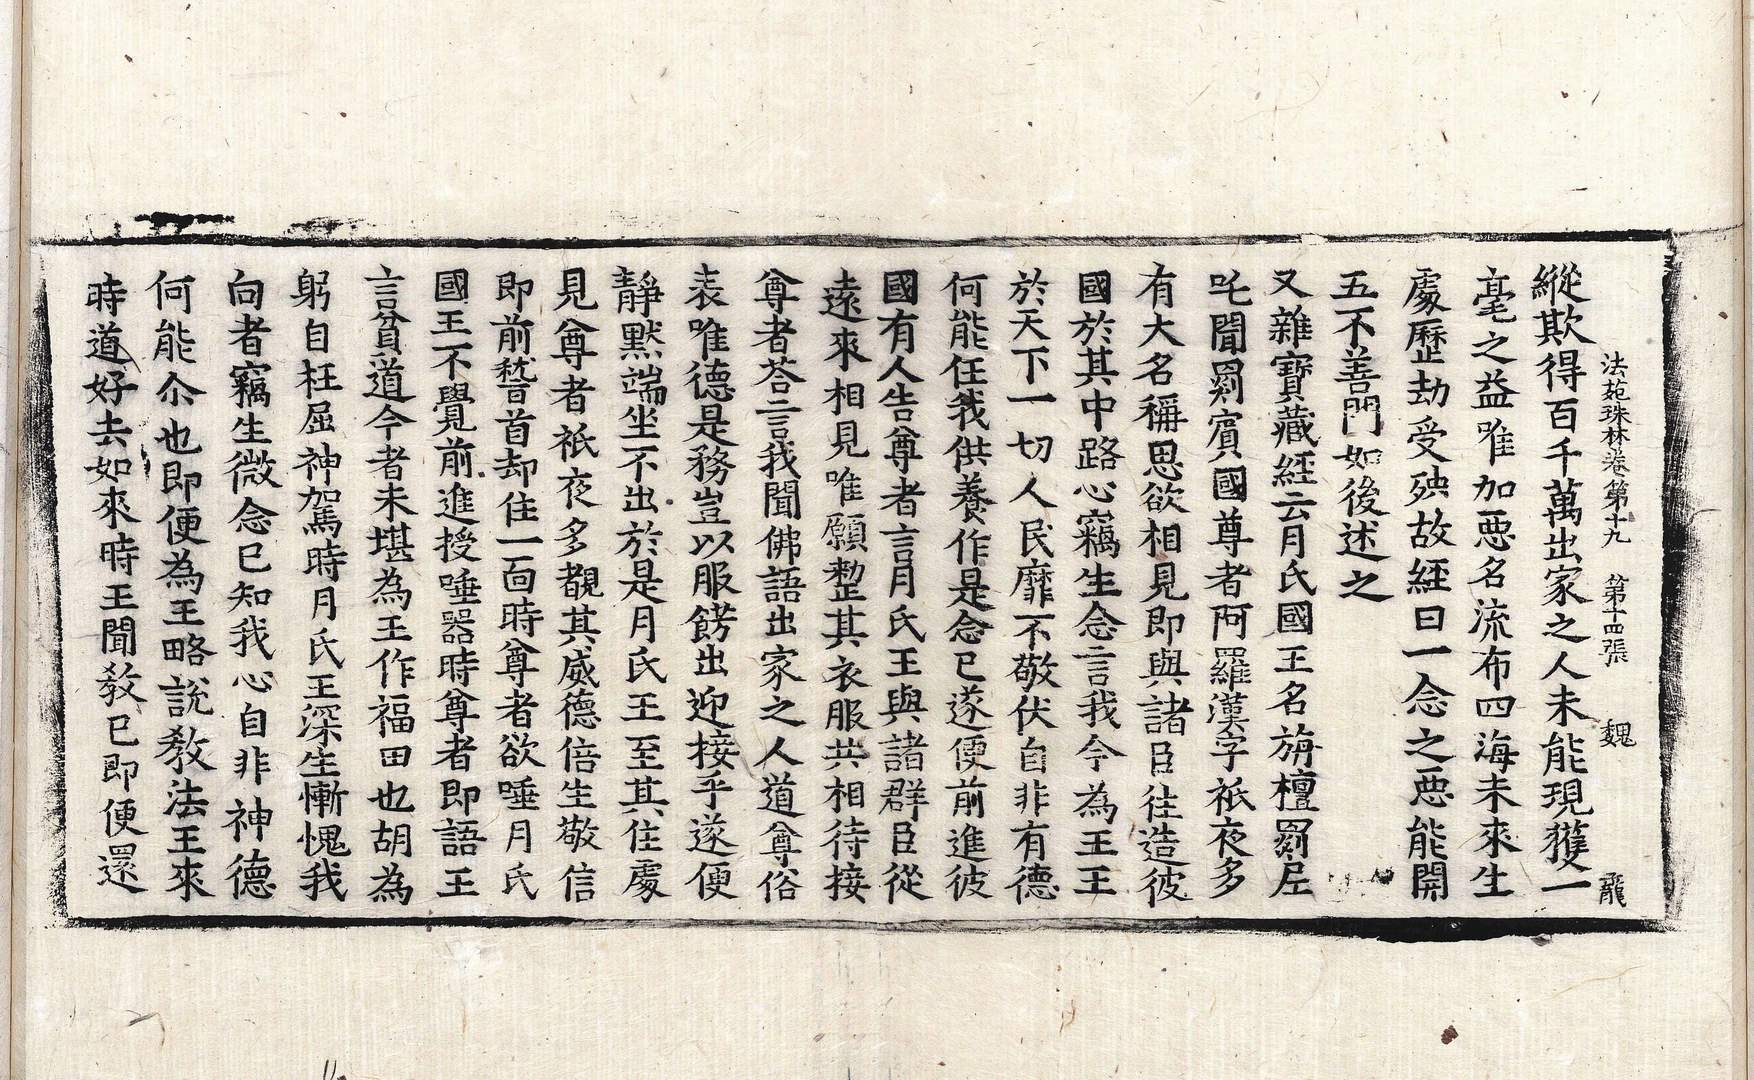 法苑珠林卷第十九 第十四張 魏 龍
縱欺得百千萬出家之人未能現獲一
毫之益唯加惡名流布四海未來生
處歷劫受殃故經曰一念之惡能開
五不善門如後述之
又雜寶藏經云月氏國王名旃檀罽尼
吒聞罽賓國尊者阿羅漢字祇夜多
有大名稱思欲相見即與諸臣往造彼
國於其中路心竊生念言我今為王王
於天下一切人民靡不敬伏自非有德
何能任我供養作是念已遂便前進彼
國有人告尊者言月氏王與諸群臣從
遠來相見唯願整其衣服共相待接
尊者荅言我聞佛語出家之人道尊俗
表唯德是務豈以服餝出迎接乎遂便
靜默端坐不出於是月氏王至其住處
見尊者祇夜多覩其威德倍生敬信
即前嵇首却住一面時尊者欲唾月氏
國王不覺前進授唾器時尊者即語王
言貧道今者未堪為王作福田也胡為
躬自枉屈神駕時月氏王深生慚愧我
向者竊生微念已知我心自非神德
何能尒也即便為王略說教法王來
時道好去如來時王聞教已即便還